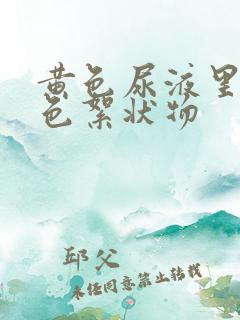 黄色尿液里
色絮状物
邱父
未经同意禁止转载